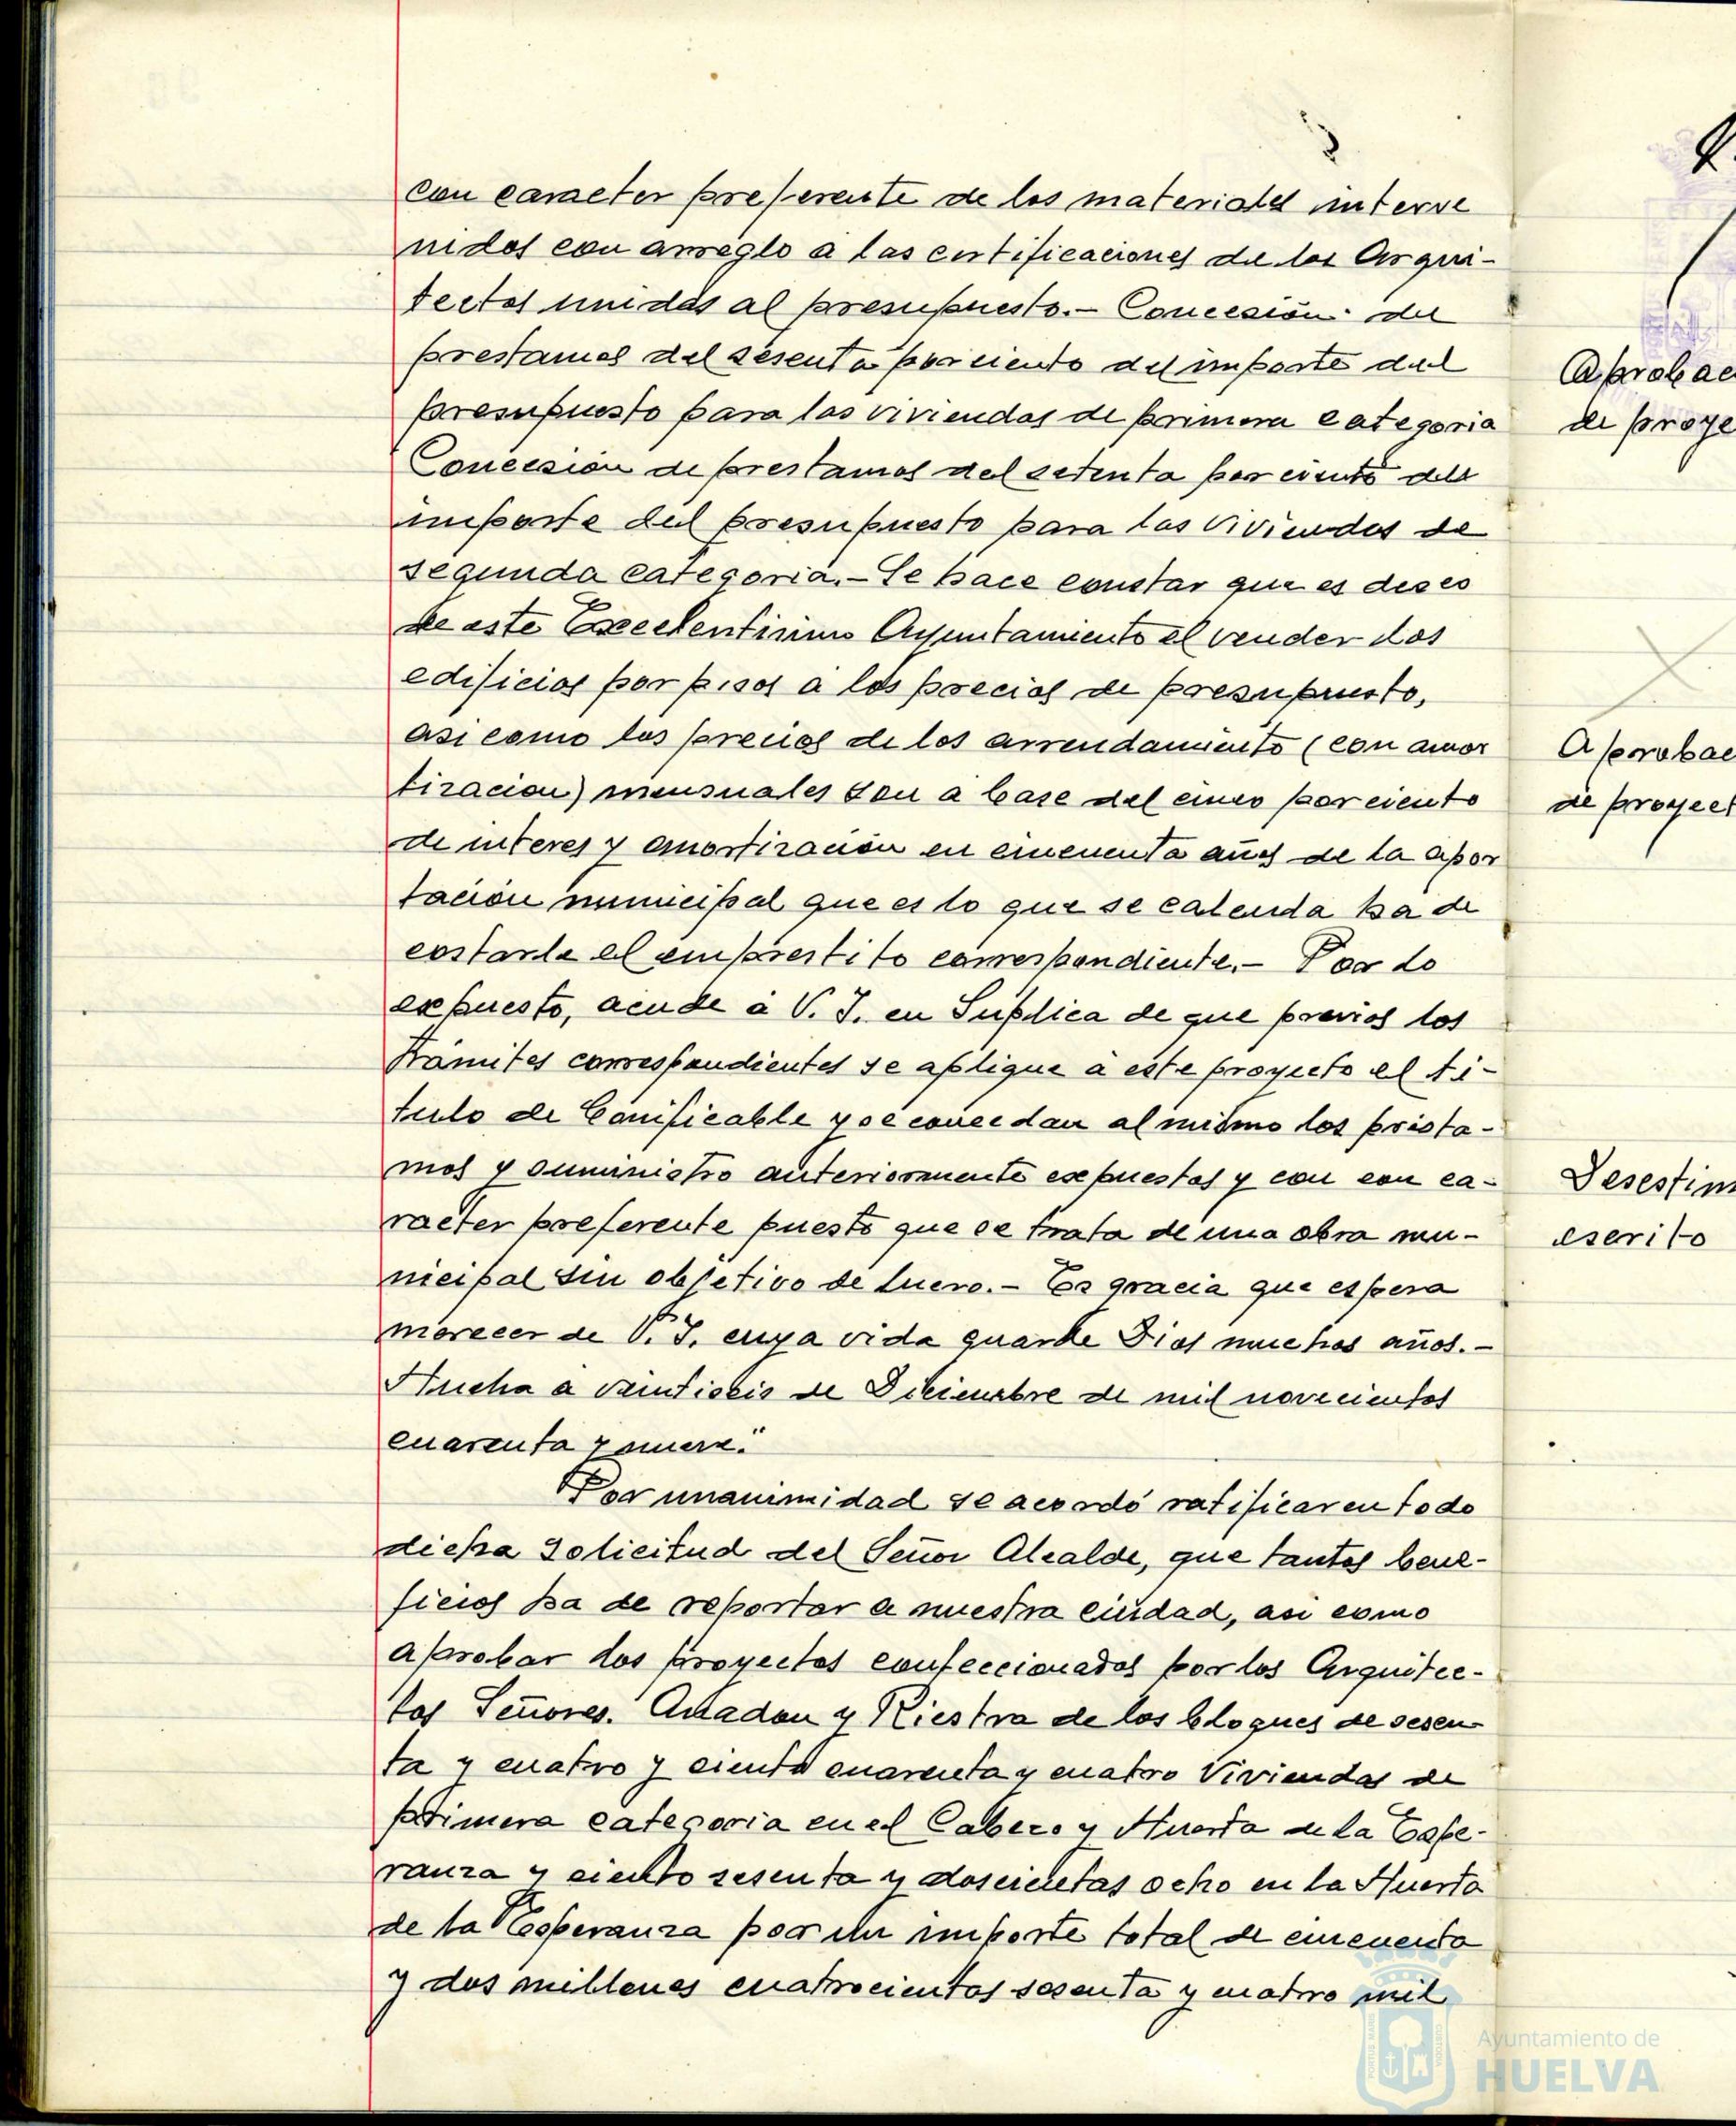 con caracter preferente de los materiales interve
nidos con arreglo a las certificaciones de los Arqui-
tectos unidas al presupuesto.- Concesión de
prestamos del sesenta por ciento del importe del
presupuesto para las viviendas de primera categoria
Concesion de prestamos del setenta por ciento del
importe del presupuesto para las viviendas de
segunda categoria.- Se hace constar que es deseo
de este Excelentisimo Ayuntamiento el vender los
edificios por pisos a los precios de presupuesto,
asi como los precios de los arrendamiento (con amor
tizacion) mensuales son a base del cinco por ciento
de interes y amortización en cincuenta años de la apor
tación municipal que es lo que se calcula ha de
costarle el emprestito correspondiente.- Por lo
expuesto, acude a V. I. en Suplica de que previos los
tramites correspondientes se aplique a este proyecto el ti-
tulo de Bonificable y se concedan al mismo los presta-
mos y suministro anteriormente expuestos y con con ca-
racter preferente puesto que se trata de una obra mu-
nicipal sin objetivo de lucro.- Es gracia que espera
merecer de V. I. cuya vida guarde Dios muchos años.-
Huelva a veintiseis de Diciembre de mil novecientos
cuarenta y nueve."
Por unanimidad se acordó ratificar en todo
dicha solicitud del Señor Alcalde, que tantos bene-
ficios ha de reportar a nuestra ciudad, asi como
aprobar los proyectos confeccionados por los Arquitec-
tos Señores. Anadon y Riestra de los bloques de sesen
ta y cuatro y ciento cuarenta y cuatro Viviendas de
primera categoria en el Cabezo y Huerta de la Espe-
ranza y ciento sesenta y doscientas ocho en la Huerta
de la Esperanza por un importe total de cincuenta
y dos millones cuatrocientos sesenta y cuatro mil
Aprobac
de proye
Aprobac
de proyect
Desestim
escrito
Ayuntamiento de
HUELVA